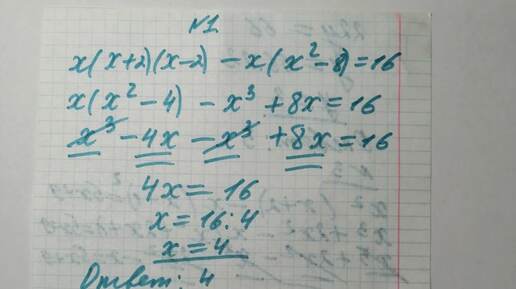 №1
x(x+2)(x-2) - x(x²-8)=16
x(x²-4) - x³ + 8x = 16
x³ - 4x - x³ + 8x = 16
4x = 16
x = 16 : 4
x = 4
Ответ: 4